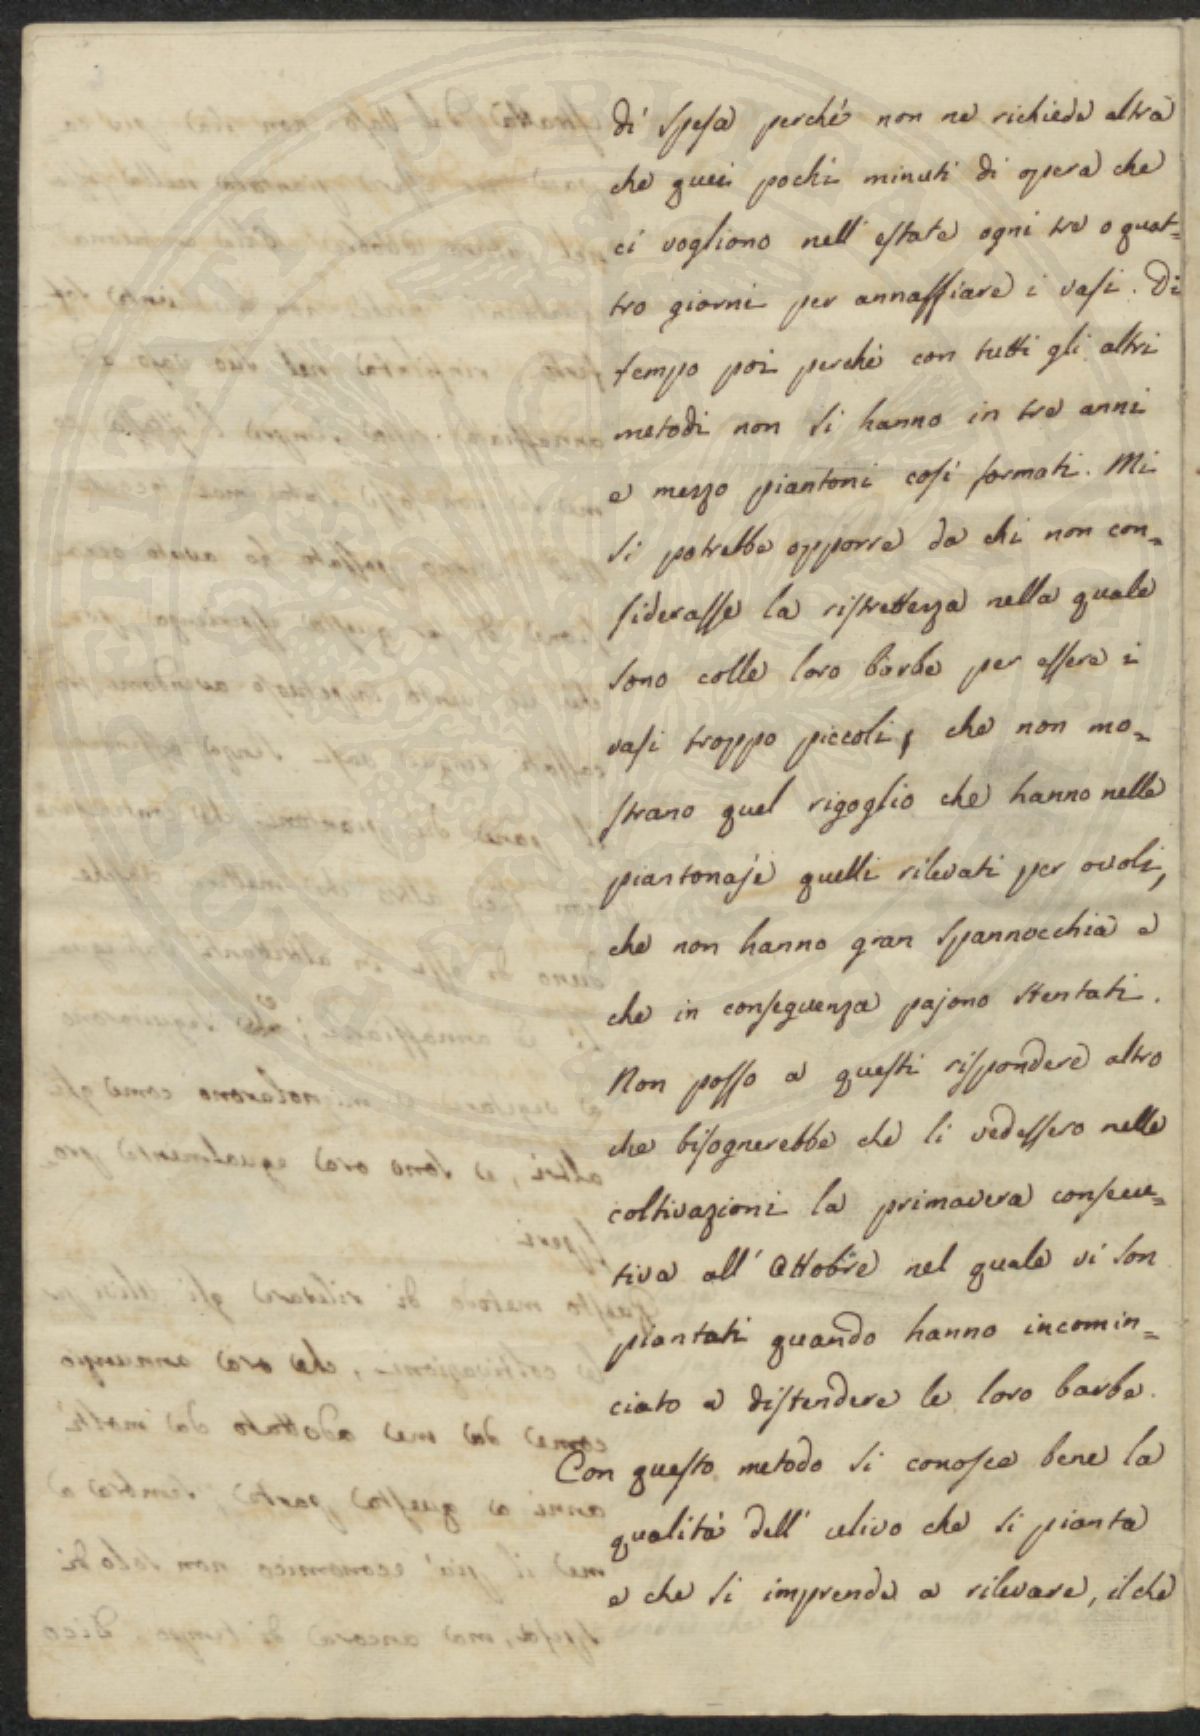 di spesa perchè non ne richiede altra
che quei pochi minuti di opera che
ci vogliono nell' estate ogni tre o quat=
tro giorni per annaffiare i vasi. Di
tempo poi perchè con tutti gli altri
metodi non si hanno in tre anni
e mezzo piantoni così formati. Mi
si potrebbe opporre da chi non con=
siderasse la ristrettezza nella quale
sono colle loro barbe per essere i
vasi troppo piccoli, che non mo=
strano quel rigoglio che hanno nelle
piantonaje quelli rilevati per ovoli,
che non hanno gran spannocchia e
che in conseguenza pajono stentati.
Non posso a questi rispondere altro
che bisognerebbe che li vedessero nelle
coltivazioni la primavera consecu=
tiva all' Ottobre nel quale vi son
piantati quando hanno incomin=
ciato a distendere le loro barbe.
Con questo metodo si conosce bene la
qualità dell' ulivo che si pianta
e che si imprende a rilevare, il che